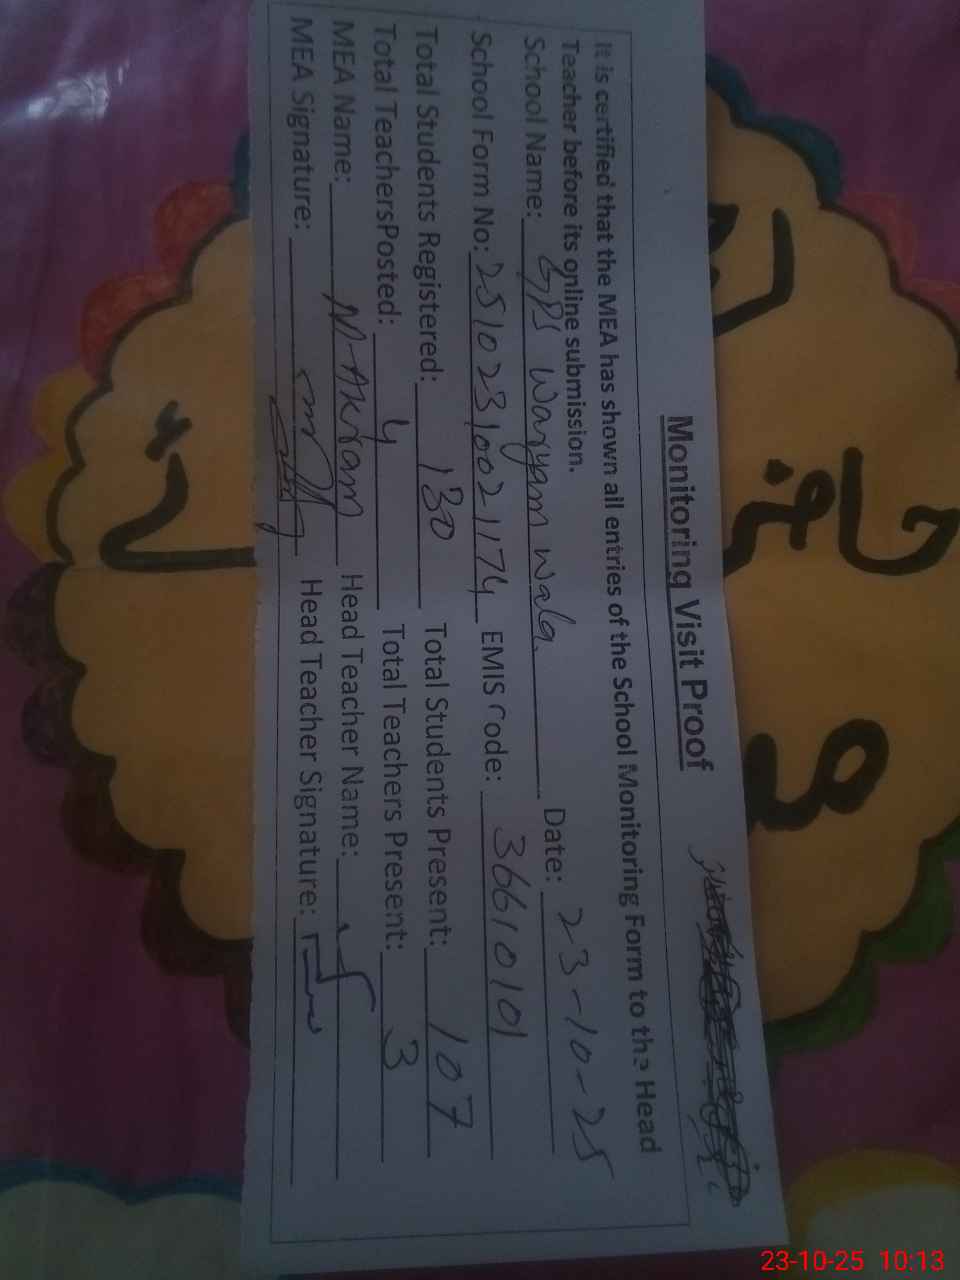 Monitoring Visit Proof
It is certified that the MEA has shown all entries of the School Monitoring Form to the Head
Teacher before its online submission.
School Name: GPS Waryam wala Date: 23-10-25
School Form No: 25102310021174 EMIS Code: 36610101
Total Students Registered: 130 Total Students Present: 107
Total TeachersPosted: 4 Total Teachers Present: 3
MEA Name: M-Akram Head Teacher Name:
MEA Signature: Head Teacher Signature:
23-10-25 10:13